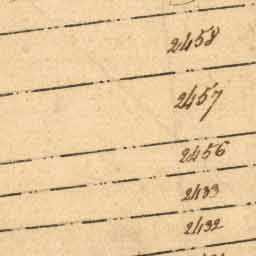 2458
2457
2456
2433
2432